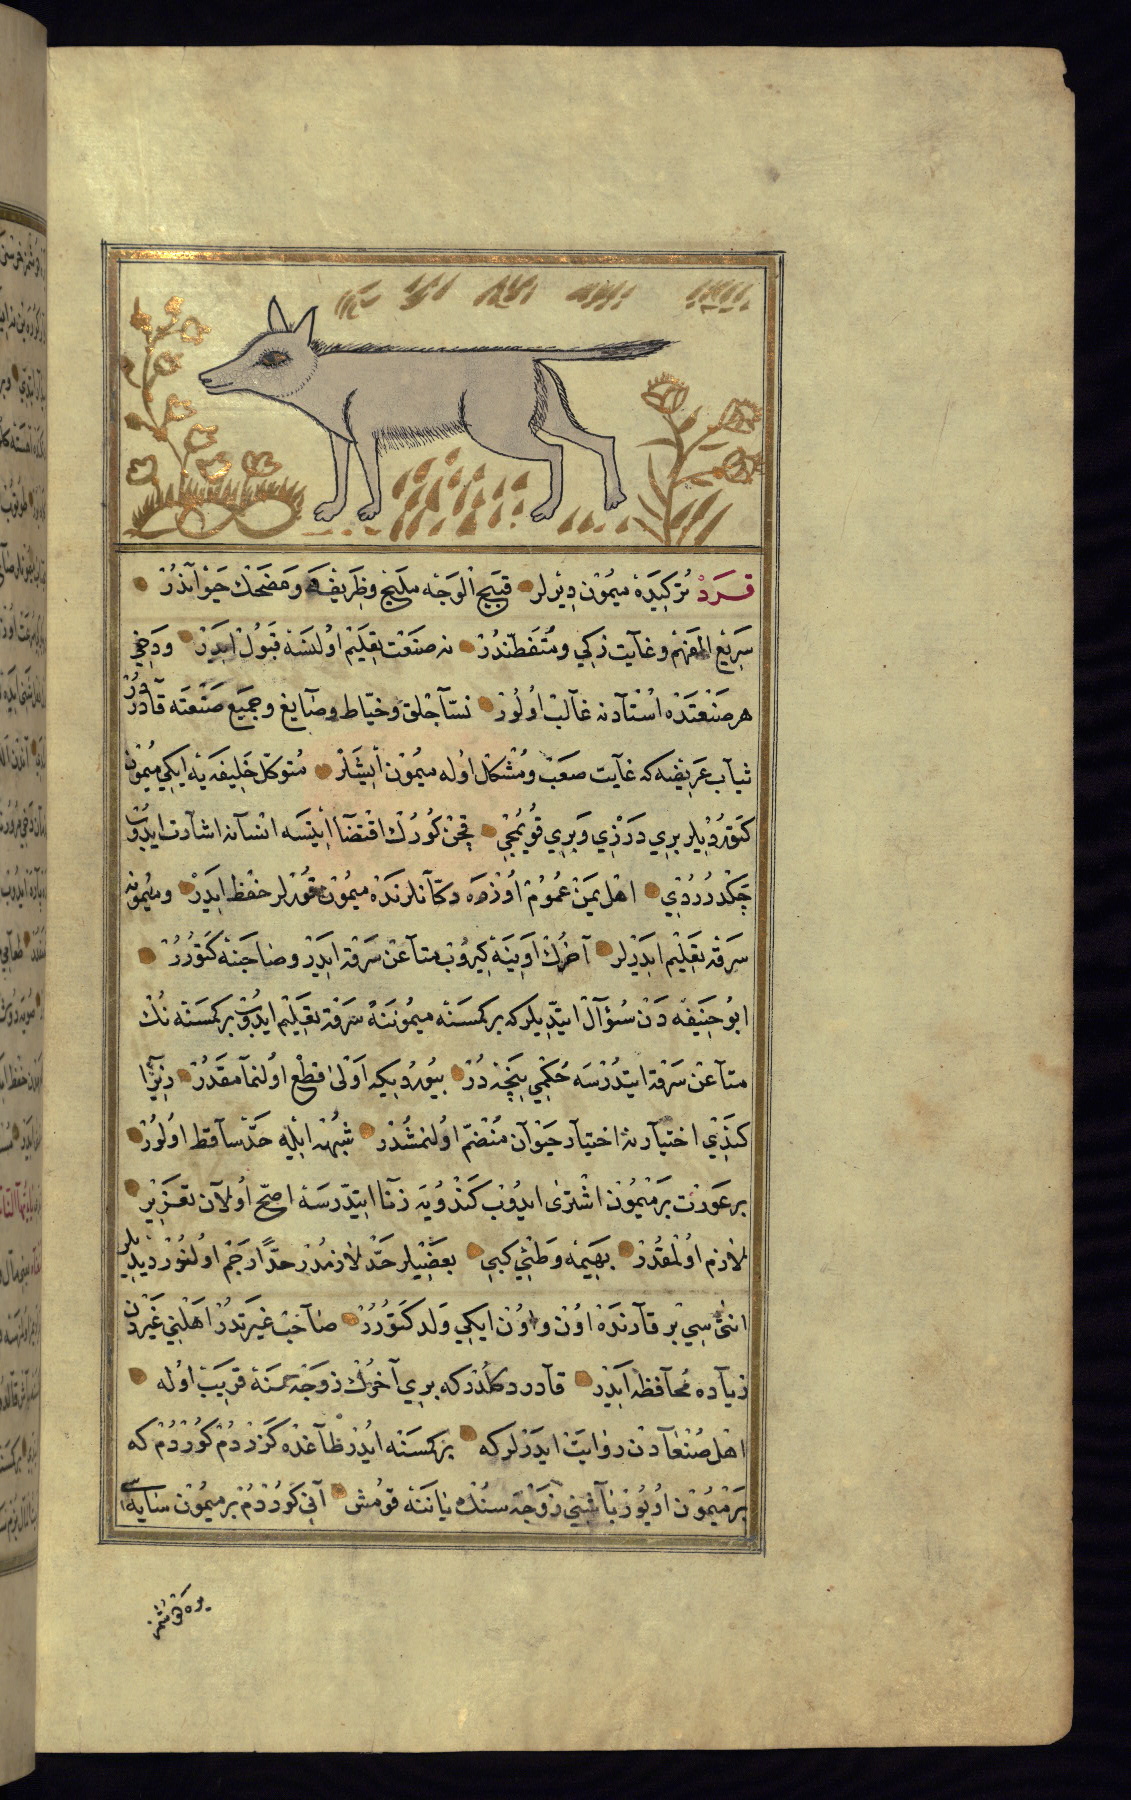 قرد تركيده ميمون ديرلر قبيح الوجه مليح وظريفه ومضحك حيواندر
سريع المفهم وغايت زكي ومتفطندر نه صنعت تعليم اولنسه قبول ايدر ودخي
هر صنعتده استادنه غالب اولور نساجلق وخياط وصايغ وجميع صنعته قادردر
ثياب عريضه كه غايت صعب ومشكل اوله ميمون ايشلر متوكل خليفه يه ايكي ميمون
كتورديلر بري درزي وبري قويمجي قچن كورك اقتضا ايلسه انسانه اشارت ايدوب
چكدرردي اهل يمن عموم اوزره دكانلرنده ميمون قورلر حفظ ايدر وميمونه
سرقه تعليم ايدرلر آخرك اوينه كيروب متاعن سرقه ايدر وصاحبنه كتورر
ابو حنيفه دن سؤال ايتديلر كه بر كمسنه ميموننه سرقه تعليم ايدوب بر كمسنه نك
متاعن سرقه ايتدرسه حكمي نيجه در بيورديكه اولى قطع اولنمامقدر زيرا
كندي اختيارنه اختيار حيوان منضم اولنمشدر شبهه ايله حد ساقط اولور
بر عورت بر ميمون اشترى ايدوب كندويه زنا ايتدرسه اصح اولان تعزير
لازم اولمقدر بهيمه وطئي كبي بعضيلر حد لازمدر حدا رجم اولنور ديديلر
انثى سي بر قارنده اون واون ايكي ولد كتورر صاحب غيرتدر اهلني غيردن
زياده محافظه ايدر قادر دكلدر كه بري آخرك زوجه سنه قريب اوله
اهل صنعادن روايت ايدرلر كه بر كمسنه ايدر طاغده كزردم كوردم كه
بر ميمون اويور باشيني زوجه سنك ياننه قومش آني كوردم بر ميمون